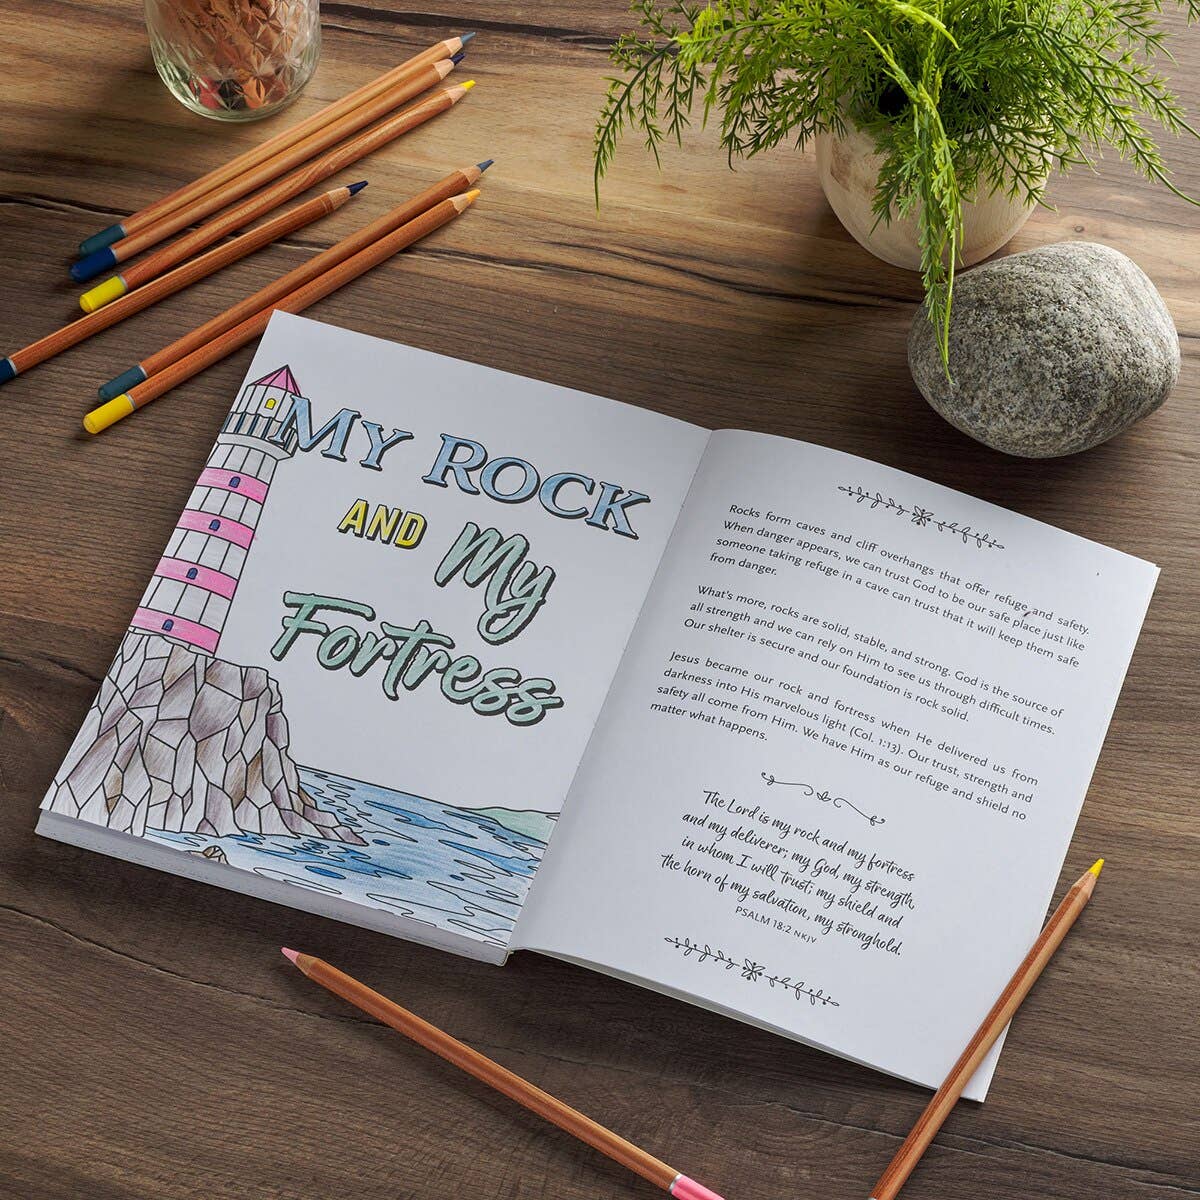 MY ROCK
AND My
Fortress
Rocks form caves and cliff overhangs that offer refuge and safety.
When danger appears, we can trust God to be our safe place just like
someone taking refuge in a cave can trust that it will keep them safe
from danger.
What's more, rocks are solid, stable, and strong. God is the source of
all strength and we can rely on Him to see us through difficult times.
Our shelter is secure and our foundation is rock solid.
Jesus became our rock and fortress when He delivered us from
darkness into His marvelous light (Col. 1:13). Our trust, strength and
safety all come from Him. We have Him as our refuge and shield no
matter what happens.
The Lord is my rock and my fortress
and my deliverer; my God, my strength,
in whom I will trust; my shield and
the horn of my salvation, my stronghold.
PSALM 18:2 NKJV